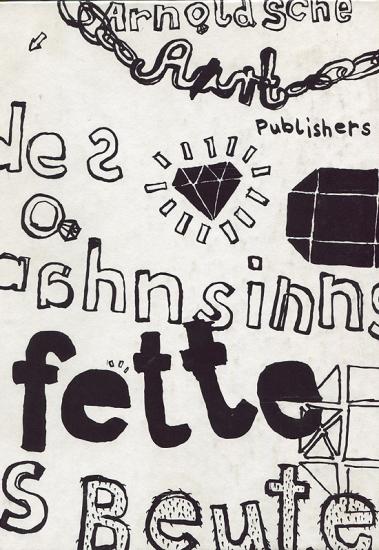 Arnoldsche
Art
Publishers
des
aahnsinns
fette
s Beute